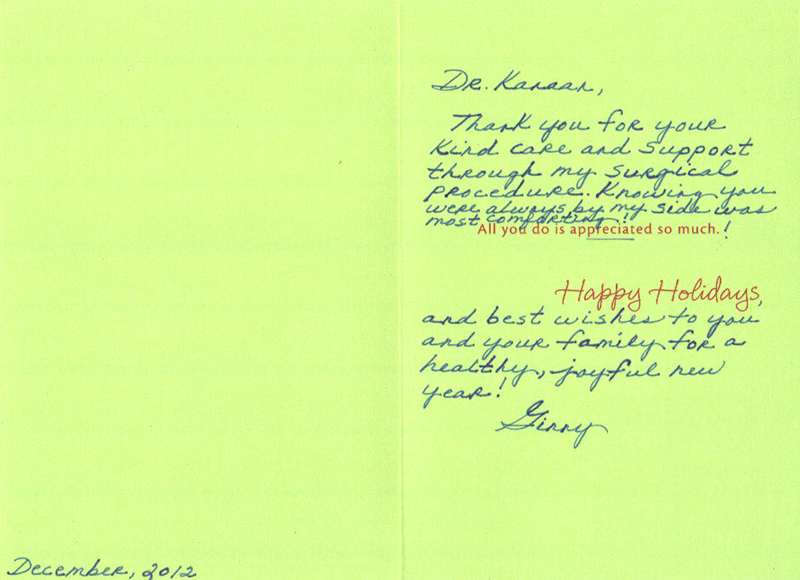 Dr. Kanaan,
Thank you for your
kind care and support
through my surgical
procedure. Knowing you
were always by my side was
most comforting!
All you do is appreciated so much.!
Happy Holidays,
and best wishes to you
and your family for a
healthy, joyful new
year!
Ginny
December, 2012